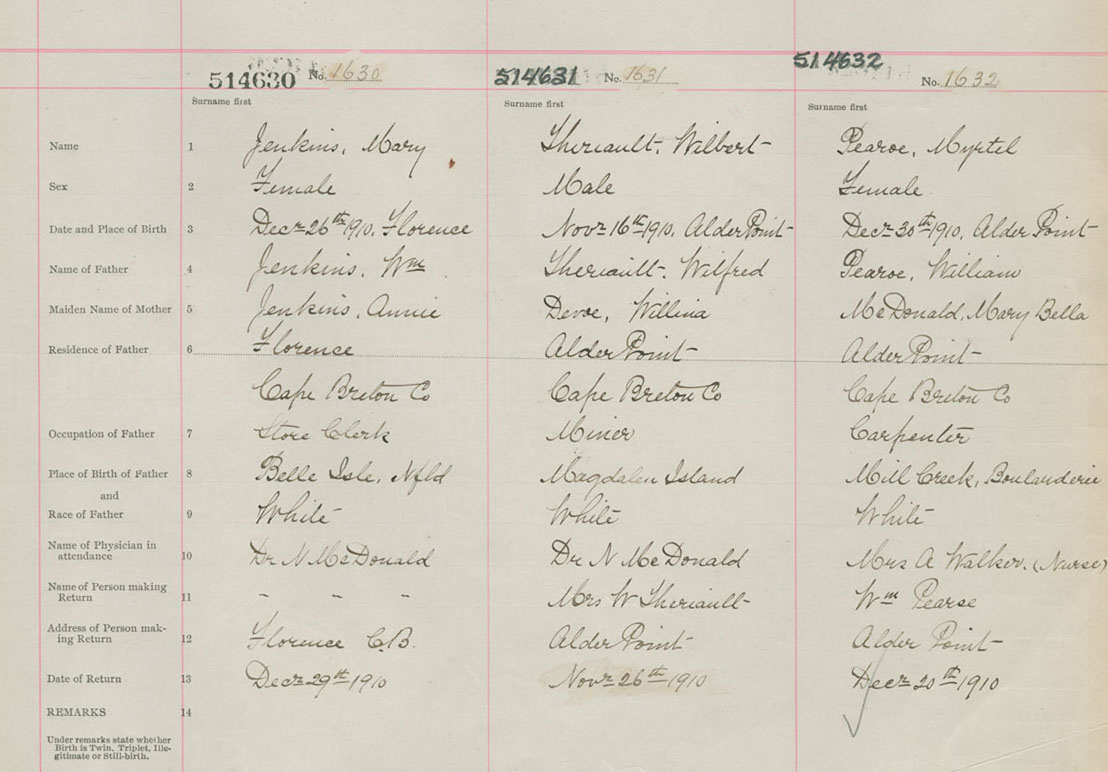 514630 No. 1630 514631 No. 1631 514632 No. 1632
Surname first Surname first Surname first
Name 1 Jenkins, Mary Theriault, Wilbert Pearoe, Myrtel
Sex 2 Female Male Female
Date and Place of Birth 3 Decr 26th 1910, Florence Novr 16th 1910, Alder Point Decr 30th 1910, Alder Point
Name of Father 4 Jenkins, Wm Theriault, Wilfred Pearoe, William
Maiden Name of Mother 5 Jenkins, Annie Devoe, Willina McDonald, Mary Bella
Residence of Father 6 Florence Alder Point Alder Point
Cape Breton Co Cape Breton Co Cape Breton Co
Occupation of Father 7 Store Clerk Miner Carpenter
Place of Birth of Father 8 Belle Isle, Nfld Magdalen Island Mill Creek, Boulanderie
and
Race of Father 9 White White White
Name of Physician in
attendance 10 Dr N McDonald Dr N McDonald Mrs A Walker. (Nurse)
Name of Person making
Return 11 - - - Mrs W Theriault Wm Pearse
Address of Person mak-
ing Return 12 Florence C.B. Alder Point Alder Point
Date of Return 13 Decr 29th 1910 Novr 26th 1910 Decr 20th 1910
REMARKS 14
Under remarks state whether
Birth is Twin, Triplet, Ille-
gitimate or Still-birth.